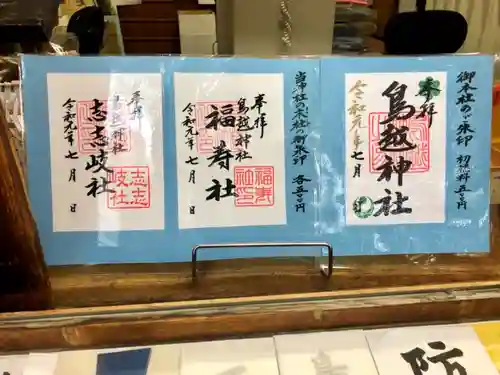 御本社のご朱印 初穂料 五百円
奉拝
鳥越神社
令和元年 七月 日
当神社の末社の御朱印 各五百円
奉拝
鳥越神社
福寿社
令和元年 七月 日
福寿社印
奉拝
鳥越神社
志志岐社
令和元年 七月 日
志志岐社
防